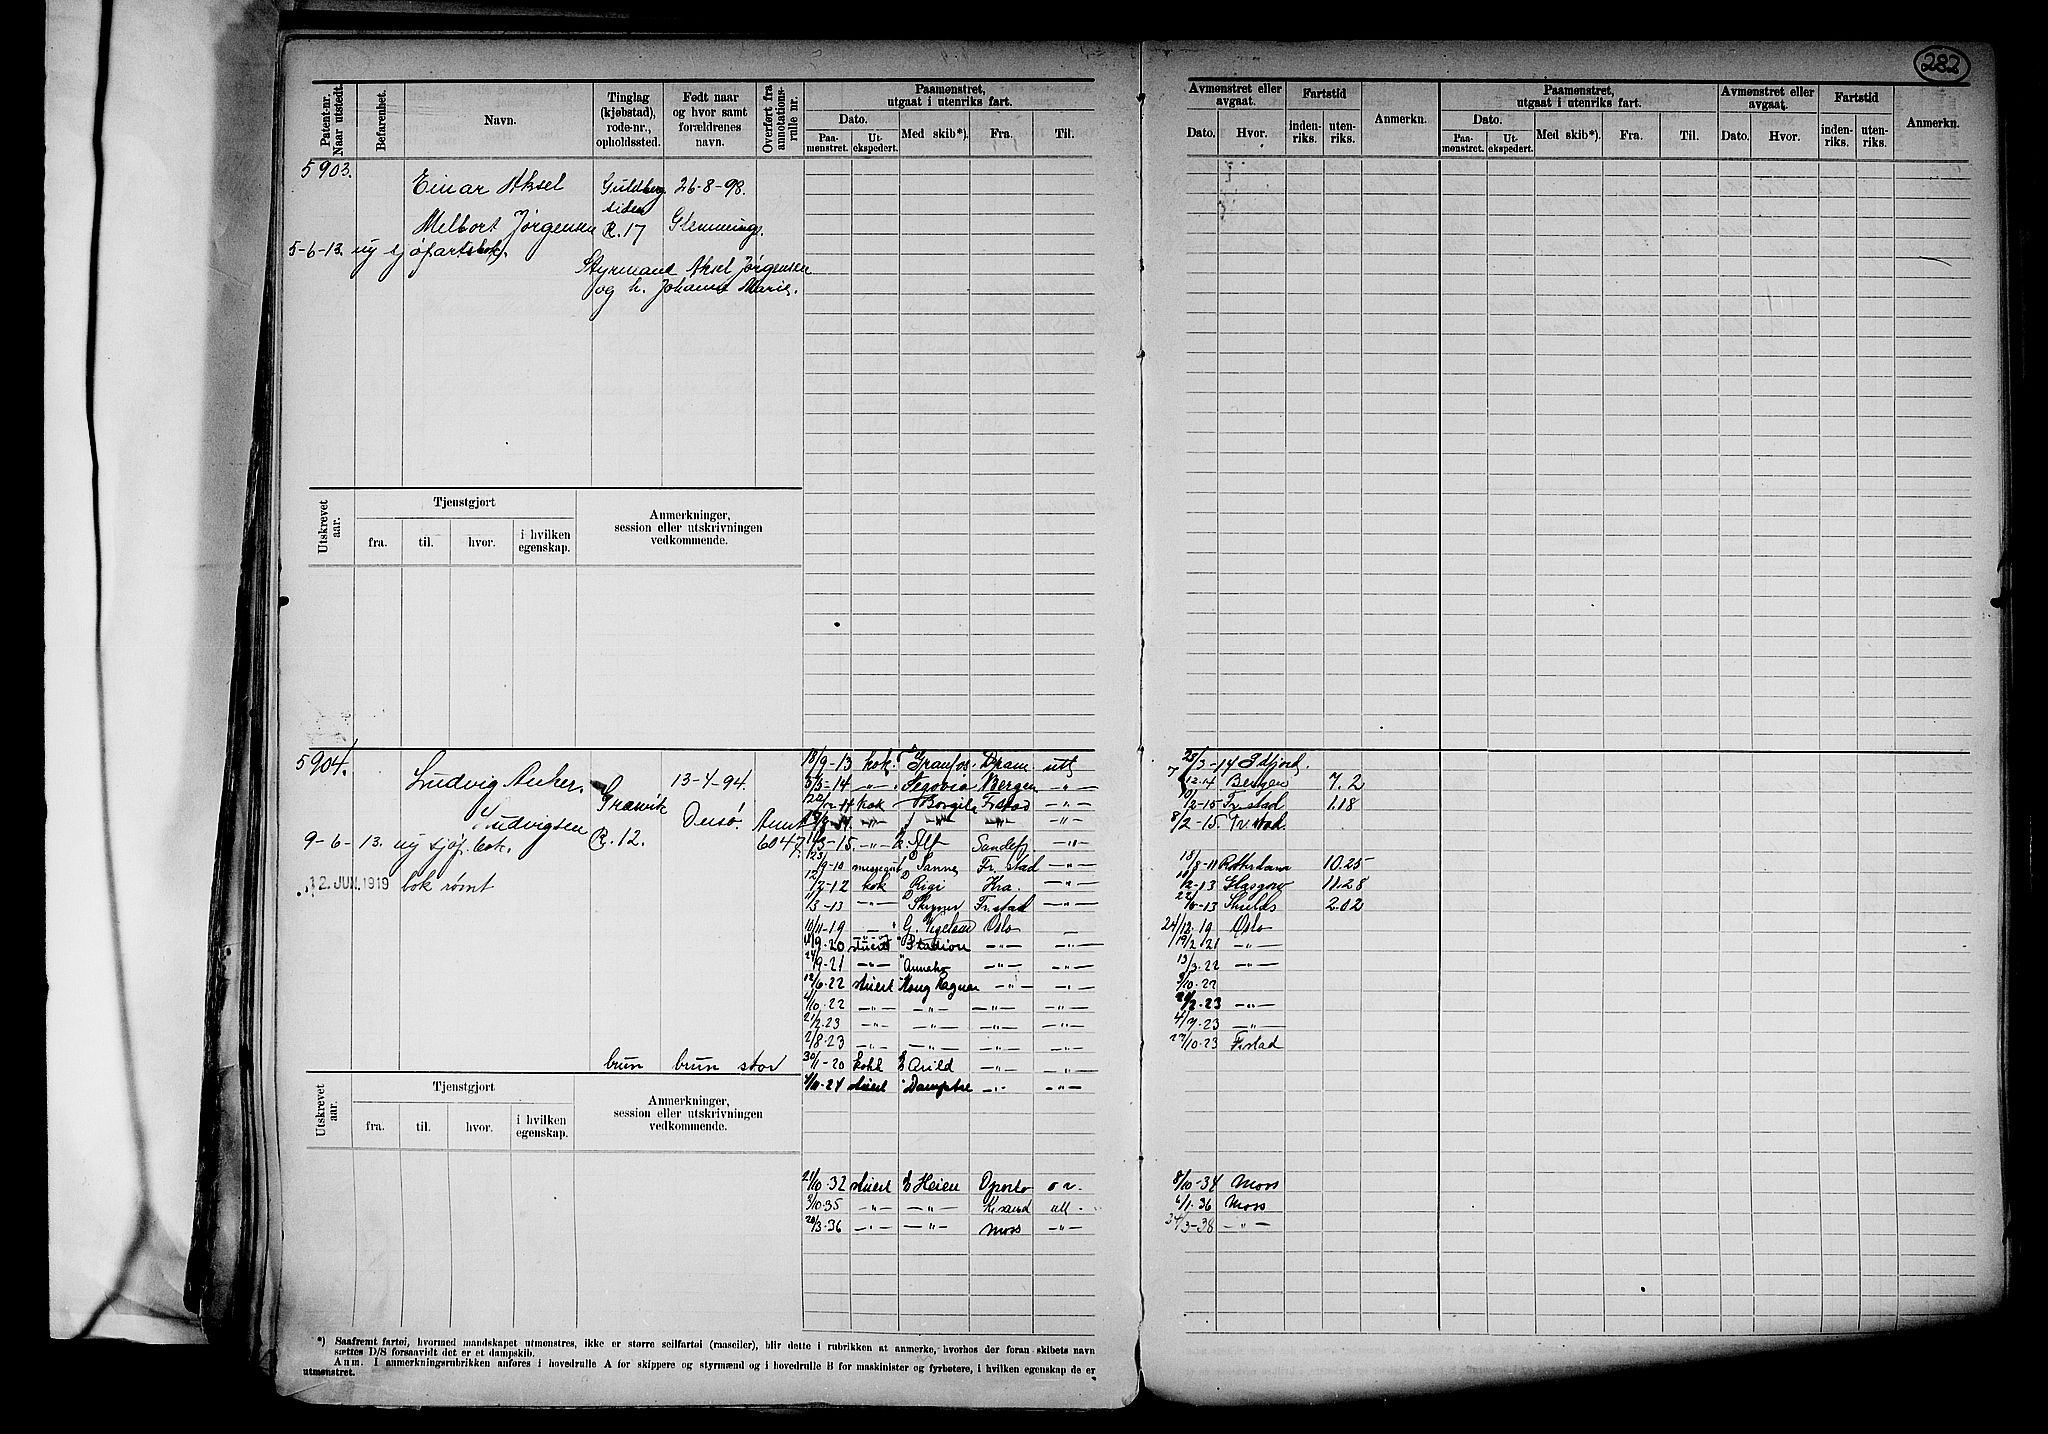 282
Patent-nr. Naar utstedt.
Befarenhet.
Navn.
Tinglag (kjøbstad), rode-nr., opholdssted.
Født naar og hvor samt forældrenes navn.
Overført fra annotations-rulle nr.
Paamønstret, utgaat i utenriks fart.
Dato.
Paa-mønstret.
Ut-ekspedert.
Med skib*).
Fra.
Til.
Avmønstret eller avgaat.
Dato.
Hvor.
Fartstid
inden-riks.
uten-riks.
Anmerkn.
Paamønstret, utgaat i utenriks fart.
Dato.
Paa-mønstret.
Ut-ekspedert.
Med skib*).
Fra.
Til.
Avmønstret eller avgaat.
Dato.
Hvor.
Fartstid
inden-riks.
uten-riks.
Anmerkn.
5903.
Einar Aksel
Melbort Jørgensen
Guldberg
siden
R. 17
26-8-98.
Glemminge.
5-6-13. ny sjøfartsbok.
Styrmand Aksel Jørgensen
og h. Johanne Marie.
Utskrevet aar.
Tjenstgjort
fra.
til.
hvor.
i hvilken egenskap.
Anmerkninger, session eller utskrivningen vedkommende.
5904.
Ludvig Anker
Ludvigsen
R. 12.
13-4-94.
Onsø.
Annt
6047.
9-6-13. ny sjøf. bok.
12. JUN. 1919 bok rømt
brun brun stor
18/9-13 kok Granfos Dram utl 23/3-14 Idfjord.
5/5-14 -"- Segovia Bergen -"- Bergen 7.2
kok Borgila Fr.stad -"- 10/2-15 Fr.stad 1.18
-"- -"- -"- 8/2-15. Fr.stad.
11/3-15. -"- Alf Sandefj. -"-
23/9-10 Sanne Fr.stad -"- 18/8-11 Rotterdam 10.25
12/2-12 kok Rigi Kra. -"- 11/2-13 Glasgow 11.28
11/3-13 -"- Fr.stad -"- 22/6-13 Shields 2.02
10/11-19 -"- G. Vigeland Oslo 24/12.19 Oslo
18/9-20 stuert Stadion -"- -"- 19/2.21 -"-
24/9-21 -"- Anneho -"- -"- 13/3.22 -"-
12/6.22 stuert Kong Ragnar -"- -"- 3/10.22
4/10.22 -"- -"- -"- -"- 20/2.23 -"-
21/2.23 -"- -"- -"- -"- 4/7.23 -"-
2/8.23 -"- -"- -"- -"- 27/10.23 Fr.stad
30/11-20 kokk Arild -"- -"-
4/10-24 stuert -"- -"-
21/10.32 stuert Heien Oporto o.v. 8/10-34 Moss
3/10.35 -"- -"- Kr.sand utl 6/1.36 Moss
20/3.36 -"- -"- Moss -"- 31/3-38 -"-
Utskrevet aar.
Tjenstgjort
fra.
til.
hvor.
i hvilken egenskap.
Anmerkninger, session eller utskrivningen vedkommende.
*) Saafremt fartøi, hvormed mandskapet utmønstres, ikke er større seilfartøi (raaseiler), blir dette i rubrikken at anmerke, hvorhos der foran skibets navn
sættes D/S forsaavidt det er et dampskib.
Anm. I anmerkningsrubrikken anføres i hovedrulle A for skippere og styrmænd og i hovedrulle B for maskinister og fyrbøtere, i hvilken egenskap de er
utmønstret.